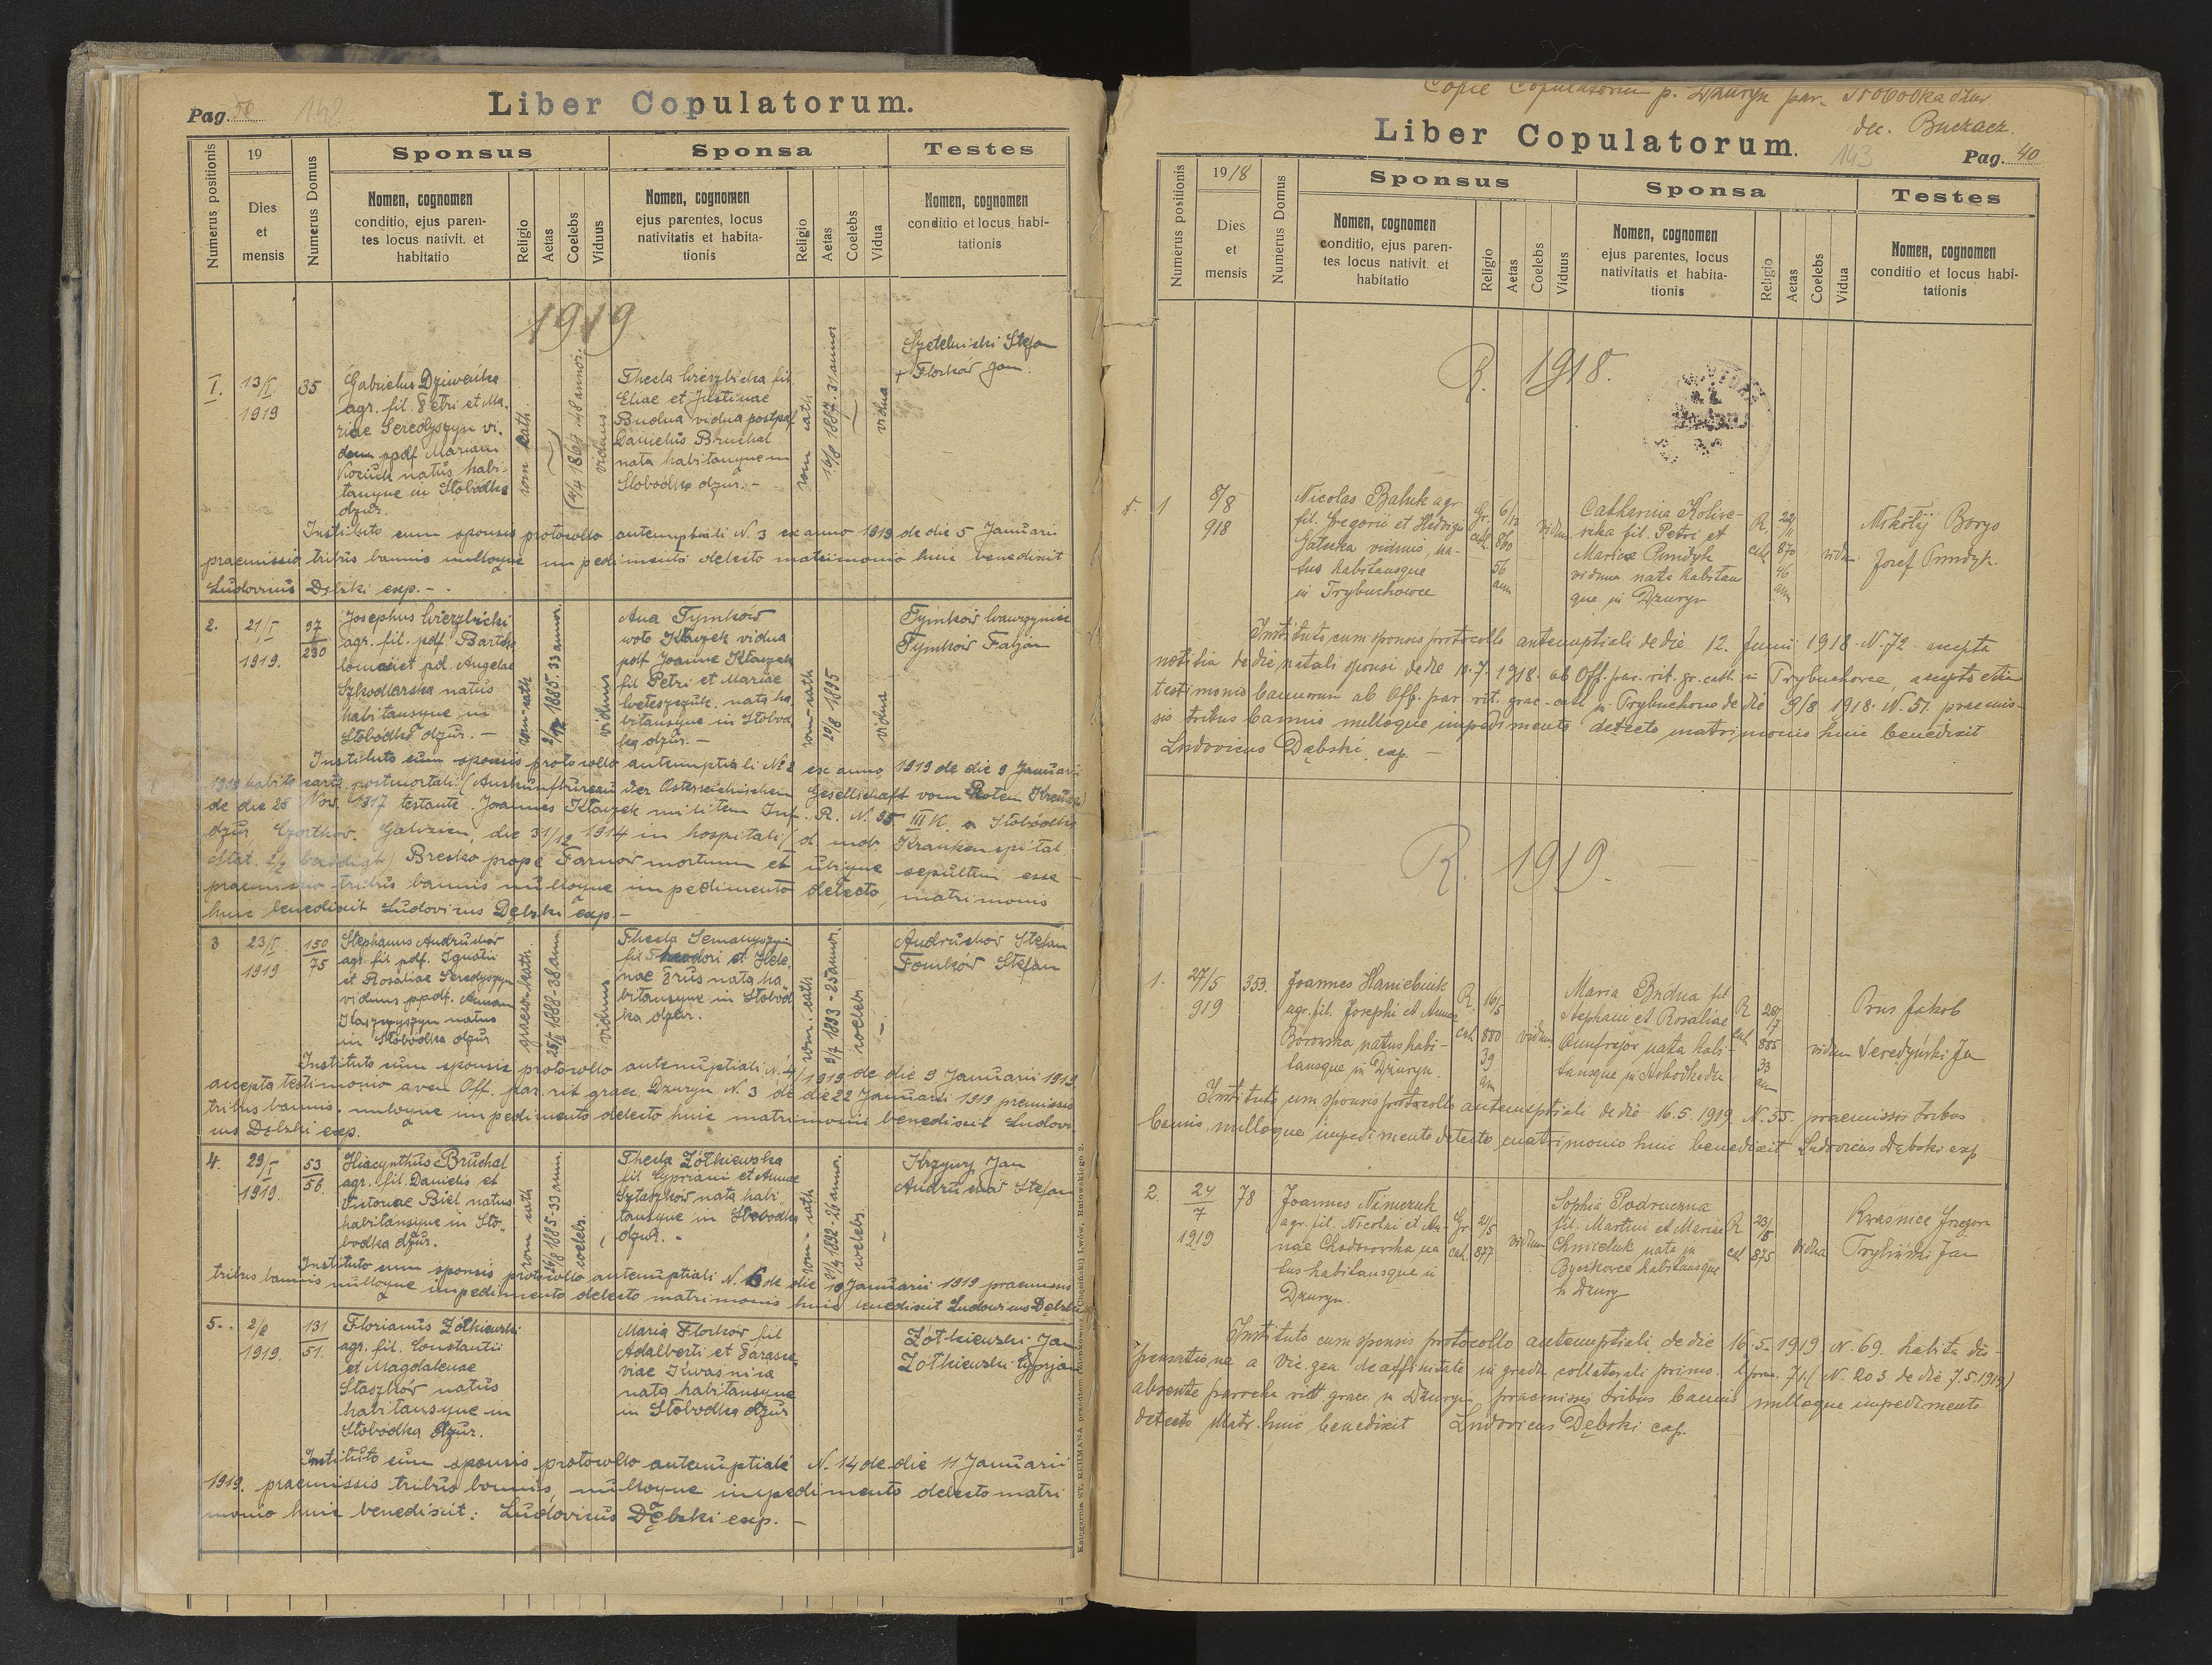 Pag. 50 142
Liber Copulatorum.
Numerus positionis
19
Dies
et
mensis
Numerus Domus
Sponsus
Nomen, cognomen
conditio, ejus paren-
tes locus nativit. et
habitatio
Religio
Aetas
Coelebs
Viduus
Sponsa
Nomen, cognomen
ejus parentes, locus
nativitatis et habita-
tionis
Religio
Aetas
Coelebs
Vidua
Testes
Nomen, cognomen
conditio et locus habi-
tationis
1919
I.
13/I
1919
35
Gabrielus
agr. fil. Petri et Ma-
riae Seredyszyn vi-
duus ppdf. Mariam
natus habi-
tansque in Słobódka
dzur.
rom cath.
viduus.
Thecla Wierzbicka fil.
Eliae et Justinae
Budna vidua post pdf.
Danielis Bruchal
nata habitansque in
Słobodka dzur. -
rom cath
16/8 1887. 31 annor
vidua
Szetelnicki Stefan
+ Florków Jan.
Instituto cum sponsis protocollo antenuptiali N. 3 ex anno 1919 de die 5 Januarii
praemissis tribus bannis nulloque impedimento detecto matrimonio huic benedixit
Ludovicus Dębski exp. -
2.
21/I
1919.
97
230
Josephus Wierzbicki
agr. fil. pdf. Bartho-
lomaei et pd. Angelae
Szkodlarska natus
habitansque in
Słobódka dzur. -
rom-cath
1885. 33 annor.
viduus
Ana Tymków
voto Kłaczek vidua
pdf. Joanne Kłaczek
fil Petri et Mariae
nata ha
bitansque in Słobod
ka dzur. -
rom-cath
20/8 1895
vidua
Tymków Wawrzyniec
Tymków Fabjan
Instituto cum sponsis protocollo antenuptiali N 2 ex anno 1919 de die 9 Januarii
1919 habita carta postmortali (Auskunftbureau der Österreichischen Gesellschaft vom Roten Kreuze)
de die 28 Nov. 1917 testante Joannes Kłaczek militem Inf. R. N. 95 III K. e Słobódka
dzur Czortków. Galizien, die 31/12 1914 in hospitali / d. mob Krankenspital
Bresko prope Tarnów mortuum et ubique sepultum esse -
praemissis tribus bannis nulloque impedimento detecto, matrimonio
huic benedixit Ludovicus Dębski exp. -
3
23/I
1919
150
75
Stephanus Andruchów
agr. fil pdf. Ignatii
et Rosaliae Seredyszyn
viduus ppdf. Annam
natus
in Słobódka dzur
graeco-cath.
25/I 1888-38 ann.
viduus
Thecla Semanyszyn
fil Theodori et Hele-
nae Prus nata ha
bitansque in Słobód
ka dzur.
rom.-cath
9/7 1893-25 annor.
coelebs
-
Andruchów Stefan
Fomków Stefan
Instituto cum sponsis protocollo antenuptiali N. 4/1919 de die 9 Januarii 1919
accepta testimonio a ven Off. par. rit graec. Dzuryn N. 3 de die 22 Januarii 1919 premissis
tribus bannis. nuloque impedimento detecto huic matrimonio benedixit Ludovi
cus Dębski exp.
4.
29/I
1919.
53
56.
Hiacynthus Bruchal
agr. fil. Danielis et
Victoriae Biel natus
habitansque in Sło-
bodka dzur.
rom cath
26/8 1885-33 ann.
coelebs.
Thecla Żółkiewska
fil Cypriani et Annae
nata habi-
tansque in Słobodka
dzur. -
rom-cath
21/4 1892-26 annor.
coelebs.
-
Krzywy Jan
Andruchów Stefan
Instituto cum sponsis protocollo antenuptiali N. 6 de die 10 Januarii 1919 praemissis
tribus bannis nulloque impedimento detecto matrimonio huic benedixit Ludovicus Dębski
5.
2/2
1919.
131
51.
Florianus Żółkiewski
agr. fil. Constantii
et Magdalenae
Staszków natus
habitansque in
Słobódka dzur.
Maria Florków fil
Adalberti et Paraske
viae Kwaśnica
nata habitansque
in Słobodka dzur
Żółkiewski Jan
Żółkiewski Cyprjan
Instituto cum sponsis protocollo antenuptiali N. 14 de die 11 Januarii
1919. praemissis tribus bannis, nulloque impedimento detecto matri
monio huic benedixit: Ludovicus Dębski exp. -
Copie Copulatorum p. Dzuryn par. Słobodka dzur.
dec. Buczacz.
Liber Copulatorum.
143
Pag. 40
Numerus positionis
1918
Dies
et
mensis
Numerus Domus
Sponsus
Nomen, cognomen
conditio, ejus paren-
tes locus nativit. et
habitatio
Religio
Aetas
Coelebs
Viduus
Sponsa
Nomen, cognomen
ejus parentes, locus
nativitatis et habita-
tionis
Religio
Aetas
Coelebs
Vidua
Testes
Nomen, cognomen
conditio et locus habi-
tationis
R. 1918.
1
8/8
918
Nicolas Baluk agr
fil. Gregorii et Hedvigis
Gałuska viduus, na-
tus habitansque
in Trybuchowce
Gr.
cath.
6/12
860
56
ann
viduus
Catharina Koliw-
fil. Petri et
Mariae Pundyk
vidua nata habitan
que in Dzuryn
R.
cath
22/11
870
46
ann
vidua.
Mikołij Borys
Jozef Pundyk.
Instituto cum sponsis protocollo antenuptiali de die 12. Junii 1918. N. 72. accepta
notitia de die natali sponsi de die 10.7.1918 ab Off. par. rit. gr. cath. in Trybuchowce, accepto etiam
testimonio bannorum ab Off. par rit. graec-cath in Trybuchowce de die 9/8 1918. N. 51. praemis-
sis tribus bannis nulloque impedimento detecto matrimonio huic benedixit
Ludovicus Dębski exp. -
R. 1919.
1.
27/5
919
353.
Joannes Haniebnik
agr. fil. Josephi et Annae
Borowska natus habi-
tansque in Dzuryn.
R.
cat.
16/5
880
39
an
viduus
Maria Budna fil
Stephani et Rosaliae
Onufrejow nata habi-
tansque in Słobodka dz
R
cat.
28/7
885
33
an
vidua
Prus Jakob
Seredyński Jan
Instituto cum sponsis protocollo antenuptiali de die 16.5.1919 N. 55. praemissis tribus
bannis, nulloque impedimento detecto matrimonio huic benedixit Ludovicus Dębski exp
2.
24
7
1919
78
Joannes Nimczuk
agr. fil. Nicolai et An-
nae Chodorowska na
tus habitansque in
Dzuryn.
Gr
cat.
21/5
877
viduus
Sophia Podruczna
fil. Martini et Mariae
Chmieluk nata in
Byczkowce habitansque
in Dzury
R
cat
23/5
875
vidua
Kwasnica Grzegorz
Trybiński Jan
Instituto cum sponsis protocollo antenuptiali de die 16.5.1919 N. 69. habita dis-
pensatione a Vic. gen. de affinitate in gradu collaterali primo. (N. 203 de die 7.5.1919)
absente parocho ritt graec. in Dzuryn praemissis tribus bannis nulloque impedimento
detecto Matr. huic benedixit Ludovicus Dębski exp.